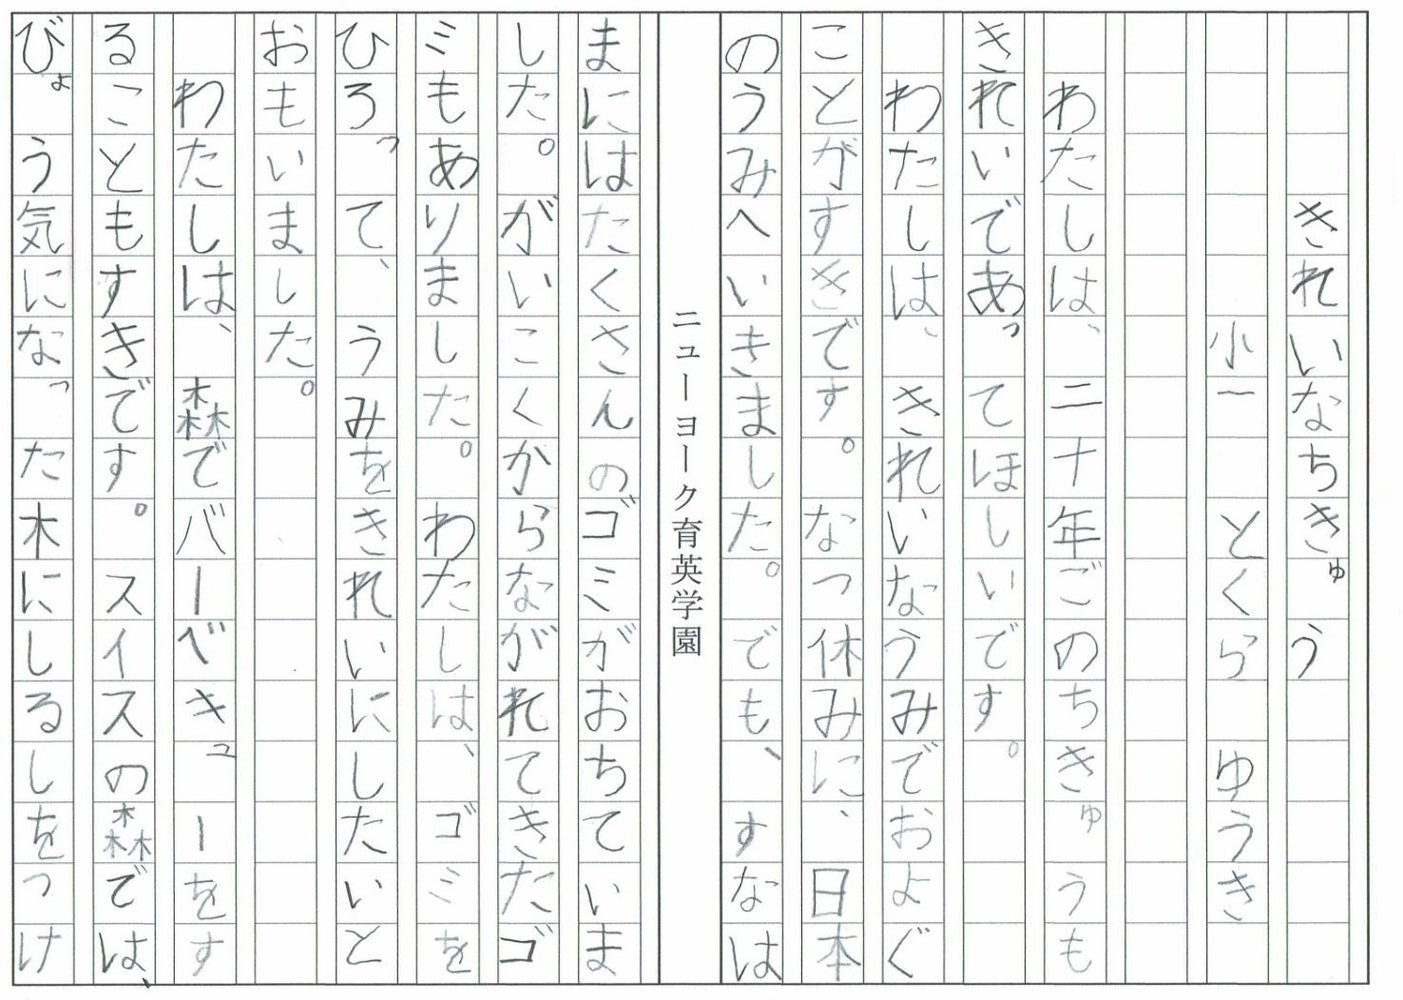 きれいなちきゅう
小一 とくら ゆうき
わたしは、二十年ごのちきゅうも
きれいであってほしいです。
わたしは、きれいなうみでおよぐ
ことがすきです。なつ休みに、日本
のうみへいきました。でも、すなは
ニューヨーク育英学園
まにはたくさんのゴミがおちていま
した。がいこくからながれてきたゴ
ミもありました。わたしは、ゴミを
ひろって、うみをきれいにしたいと
おもいました。
わたしは、森でバーベキューをす
ることもすきです。スイスの森では、
びょう気になった木にしるしをつけ